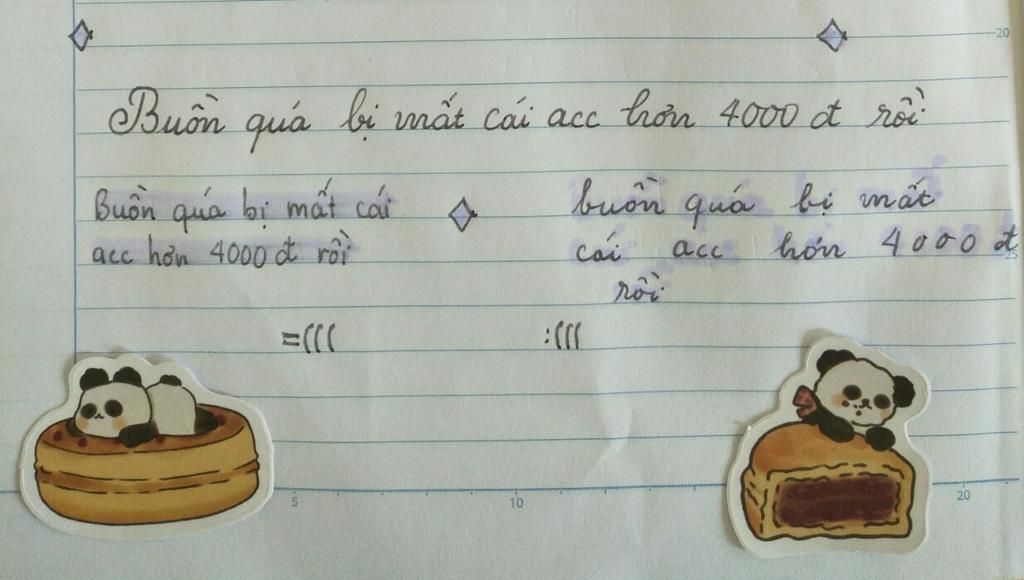 Buồn quá bị mất cái acc hơn 4000 đ rồi
Buồn quá bị mất cái
acc hơn 4000 đ rồi
buồn quá bị mất
cái acc hơn 4000 đ
rồi
=(((
:(((
20
25
5
10
20